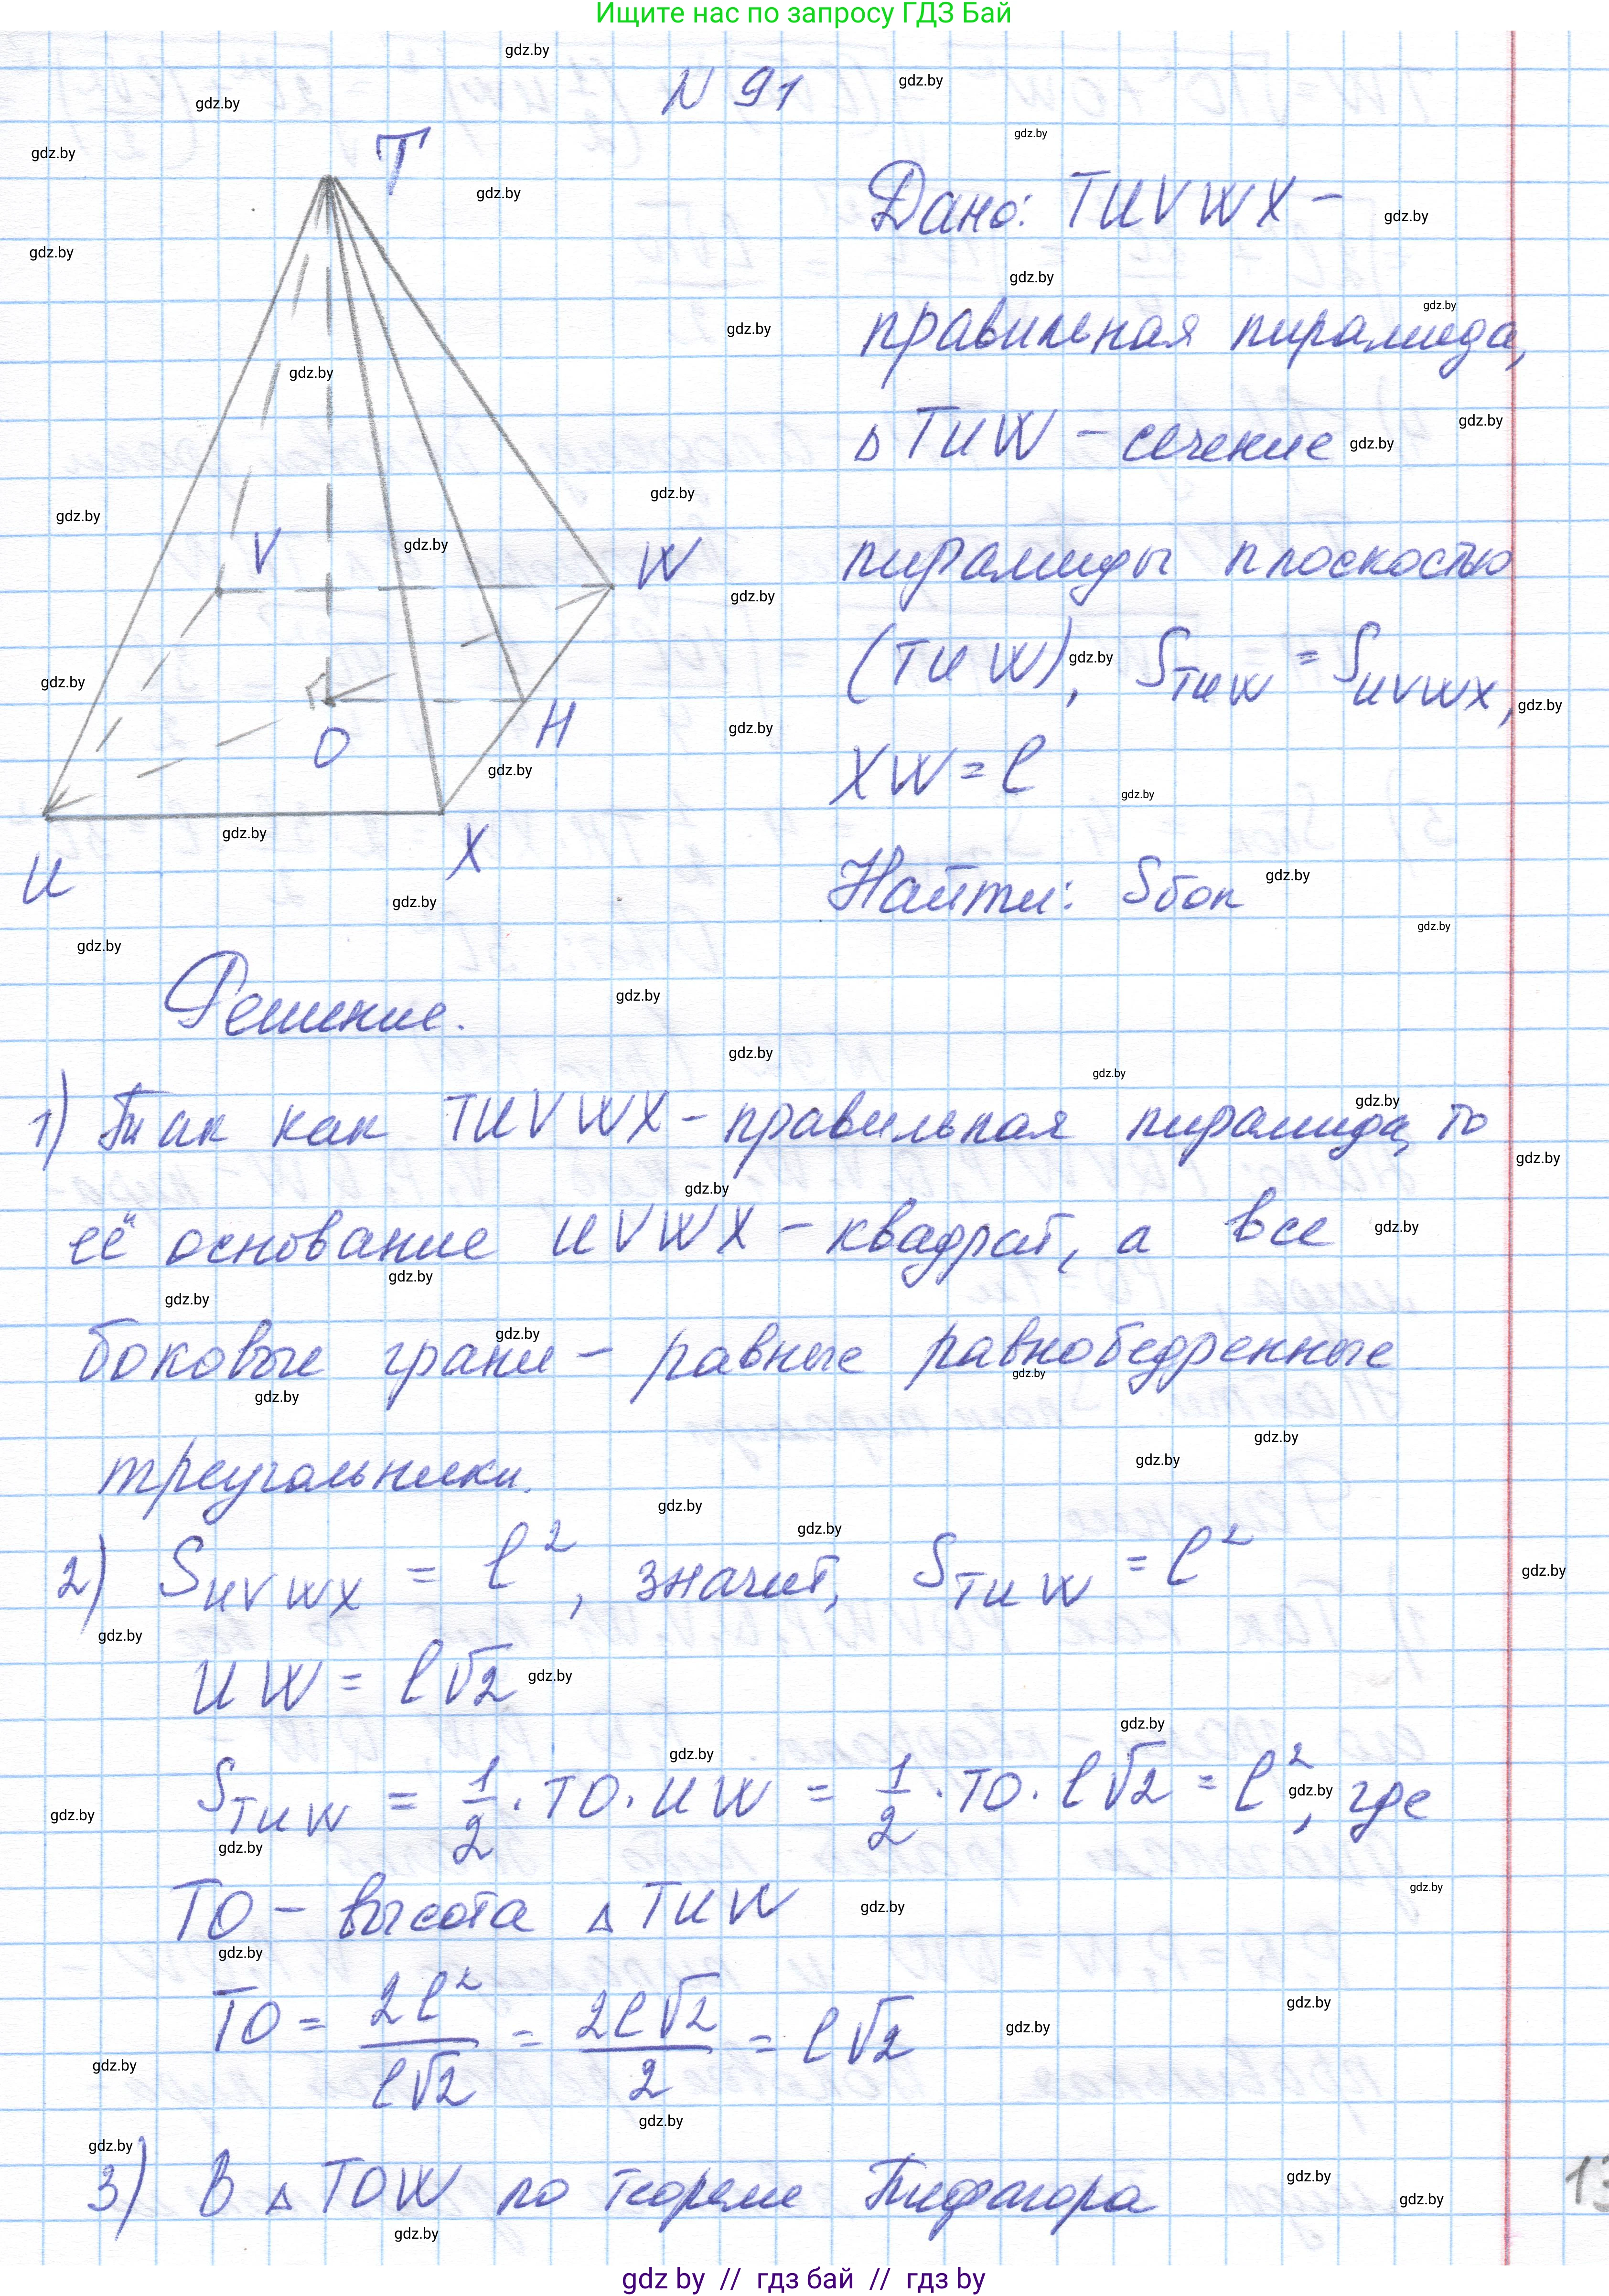 Ищите нас по запросу ГДЗ Бай
N 91
T
Дано: TUVWX –
правильная пирамида,
△ TUW – сечение
V
W
пирамиды плоскостью
(TUW), S_TUW = S_UVWX,
O
H
XW = l
U
X
Найти: Sбок
Решение.
1) Так как TUVWX – правильная пирамида, то
её основание UVWX – квадрат, а все
боковые грани – равные равнобедренные
треугольники.
2) S_UVWX = l², значит, S_TUW = l²
UW = l√2
S_TUW = 1/2 · TO · UW = 1/2 · TO · l√2 = l², где
TO – высота △ TUW
TO = 2l²/l√2 = 2l√2/2 = l√2
3) В △ TOW по теореме Пифагора
13
gdz by // гдз бай // гдз by
gdz.by